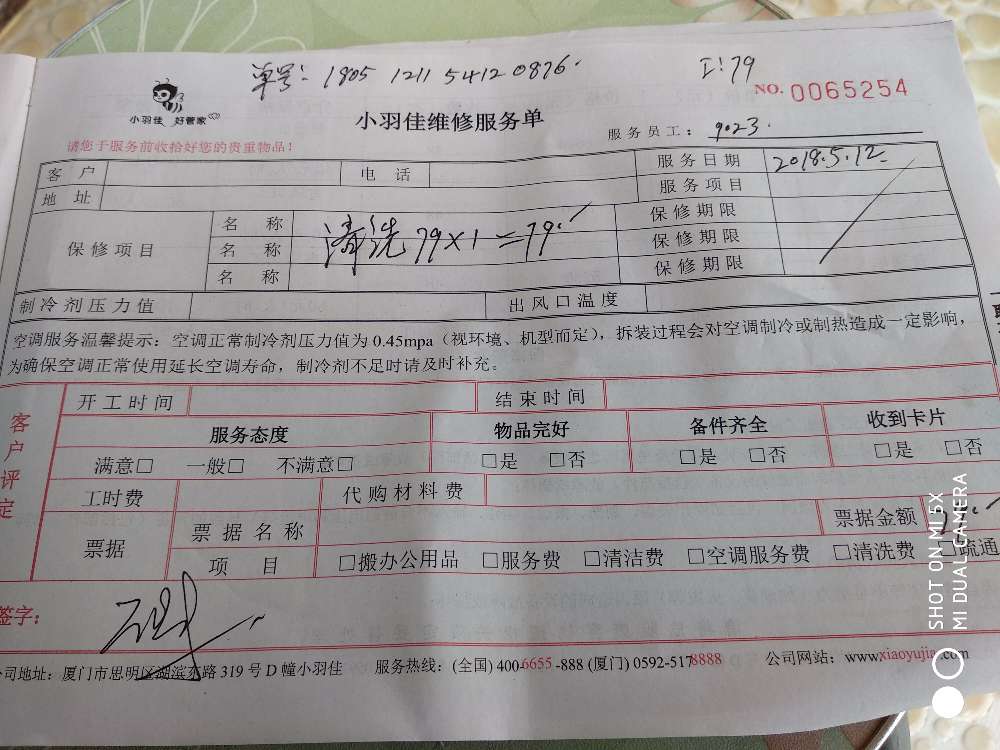 单号: 1805 1211 5412 0876.
工: 79
NO. 0065254
小羽佳 好管家
小羽佳维修服务单
服务员工: 9023.
请您于服务前收拾好您的贵重物品!
客户 电话 服务日期 2018.5.12.
地址 服务项目
保修项目 名称 清洗 79×1=79. 保修期限
名称 保修期限
名称 保修期限
制冷剂压力值 出风口温度
空调服务温馨提示: 空调正常制冷剂压力值为 0.45mpa (视环境、机型而定), 拆装过程会对空调制冷或制热造成一定影响,
为确保空调正常使用延长空调寿命, 制冷剂不足时请及时补充。
客户评定
开工时间 结束时间
服务态度 物品完好 备件齐全 收到卡片
满意□ 一般□ 不满意□ □是 □否 □是 □否 □是 □否
工时费 代购材料费
票据 票据名称 票据金额
项目 □搬办公用品 □服务费 □清洁费 □空调服务费 □清洗费 □疏通
签字:
公司地址: 厦门市思明区湖滨东路 319 号 D 幢小羽佳 服务热线: (全国) 400-6655-888 (厦门) 0592-5178888 公司网站: www.xiaoyujia.com
SHOT ON MI 5X
MI DUAL CAMERA